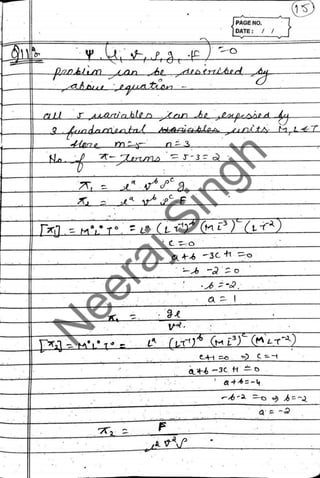 15
PAGE NO.
DATE: / /
Q11) ψ (l, v, ρ, g, F) = 0
problem can be described by
above equation -
all 5 variables can be expressed by
3 fundamental units M, L & T
Here m = 5 n = 3
No. of π-Terms = 5-3 = 2
π₁ = lᵃ vᵇ ρᶜ g
π₂ = lᵃ vᵇ ρᶜ F
[π₁] = M° L° T° = Lᵃ (LT⁻¹)ᵇ (ML⁻³)ᶜ (LT⁻²)
c = 0
a+b -3c +1 = 0
-b -2 = 0
b = -2
a = 1
π₁ = gl
v²
[π₂] = M° L° T° = Lᵃ (LT⁻¹)ᵇ (ML⁻³)ᶜ (M'LT⁻²)
c+1 = 0 ⇒ c = -1
a+b -3c +1 = 0
a+b = -4
-b-2 = 0 ⇒ b = -2
a = -2
π₂ = F
l² v² ρ
Neeraj Singh